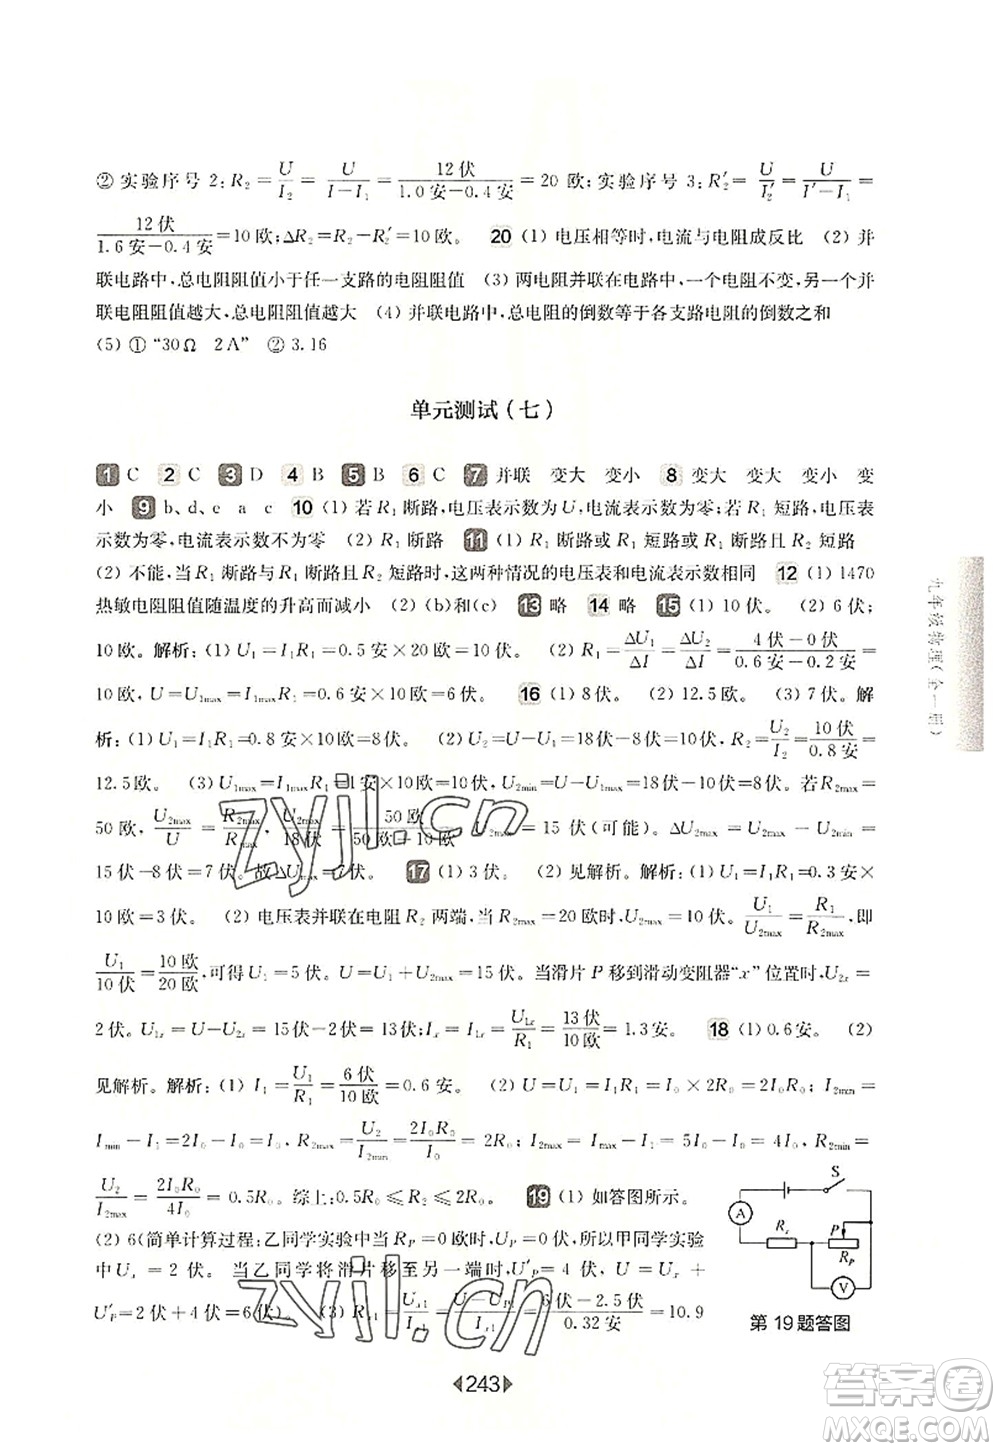 ② 实验序号 2:R₂=U/I₂=U/(I-I₁)=12伏/(1.0安-0.4安)=20 欧;实验序号 3:R₂′=U/I₂′=U/(I′-I₁)=
12伏/(1.6安-0.4安)=10欧;ΔR₂=R₂-R₂′=10欧。 20 (1) 电压相等时,电流与电阻成反比 (2) 并
联电路中,总电阻阻值小于任一支路的电阻阻值 (3) 两电阻并联在电路中,一个电阻不变,另一个并
联电阻阻值越大,总电阻阻值越大 (4) 并联电路中,总电阻的倒数等于各支路电阻的倒数之和
(5) ① “30Ω 2A” ② 3.16
单元测试(七)
1 C 2 C 3 D 4 B 5 B 6 C 7 并联 变大 变小 8 变大 变大 变小 变
小 9 b、d、e a c 10 (1) 若 R₁ 断路,电压表示数为 U,电流表示数为零;若 R₁ 短路,电压表
示数为零,电流表示数不为零 (2) R₁ 断路 11 (1) R₁ 断路或 R₁ 短路或 R₂ 短路
(2) 不能,当 R₁ 断路与 R₁ 断路且 R₂ 短路时,这两种情况的电压表和电流表示数相同 12 (1) 1470
热敏电阻阻值随温度的升高而减小 (2) (b)和(c) 13 略 14 略 15 (1) 10伏。 (2) 6伏;
10欧。解析:(1) U₁=I₁R₁=0.5安×20欧=10伏。 (2) R₁=ΔU₁/ΔI=ΔU₂/ΔI=(4伏-0伏)/(0.6安-0.2安)=
10欧。U=U₁max=I₁maxR₁=0.6安×10欧=6伏。 16 (1) 8伏。 (2) 12.5欧。 (3) 7伏。解
析:(1) U₁=I₁R₁=0.8安×10欧=8伏。 (2) U₂=U-U₁=18伏-8伏=10伏,R₂=U₂/I₂=10伏/0.8安=
12.5欧。 (3) U₁max=I₁maxR₁=1安×10欧=10伏,U₂min=U-U₁max=18伏-10伏=8伏。若R₂max=
50欧,U₂max/U=R₂max/Rmax,U₂max/18伏=50欧/(50欧+10欧),U₂max=15伏(可能)。ΔU₂max=U₂max-U₂min=
15伏-8伏=7伏。故ΔU₂=7伏。 17 (1) 3伏。 (2) 见解析。解析:(1) U₁=I₁R₁=0.3安×
10欧=3伏。 (2) 电压表并联在电阻 R₂ 两端,当 R₂max=20欧时,U₂max=10伏。U₁/U₂max=R₁/R₂max,即
U₁/10伏=10欧/20欧,可得 U₁=5伏。U=U₁+U₂max=15伏。当滑片 P 移到滑动变阻器“x”位置时,U₂x=
2伏。U₁x=U-U₂x=15伏-2伏=13伏;Ix=I₁x=U₁x/R₁=13伏/10欧=1.3安。 18 (1) 0.6安。 (2)
见解析。解析:(1) I₁=U₁/R₁=6伏/10欧=0.6安。 (2) U=U₁=U₂=I₁R₁=I₀×2R₀=2I₀R₀,I₂min=
Imin-I₁=2I₀-I₀=I₀,R₂max=U₂/I₂min=2I₀R₀/I₀=2R₀;I₂max=Imax-I₁=5I₀-I₀=4I₀,R₂min=
U₂/I₂max=2I₀R₀/4I₀=0.5R₀。综上:0.5R₀≤R₂≤2R₀。 19 (1) 如答图所示。
(2) 6(简单计算过程:乙同学实验中当 R_P=0时,U_P=0伏,所以甲同学实验
中 Ux=2伏。当乙同学将滑片移至另一端时,U′_P=4伏,U=Ux+
U′_P=2伏+4伏=6伏)。 (3) Rx1=Ux1/Ix1=(U-U_P1)/Ix1=(6伏-2.5伏)/0.32安=10.9
S
A
Rx
P
R_P
V
第 19 题答图
九年级物理(全一册)
243
zyjl.cn
zyjl.cn
答案卷
MXQE.COM